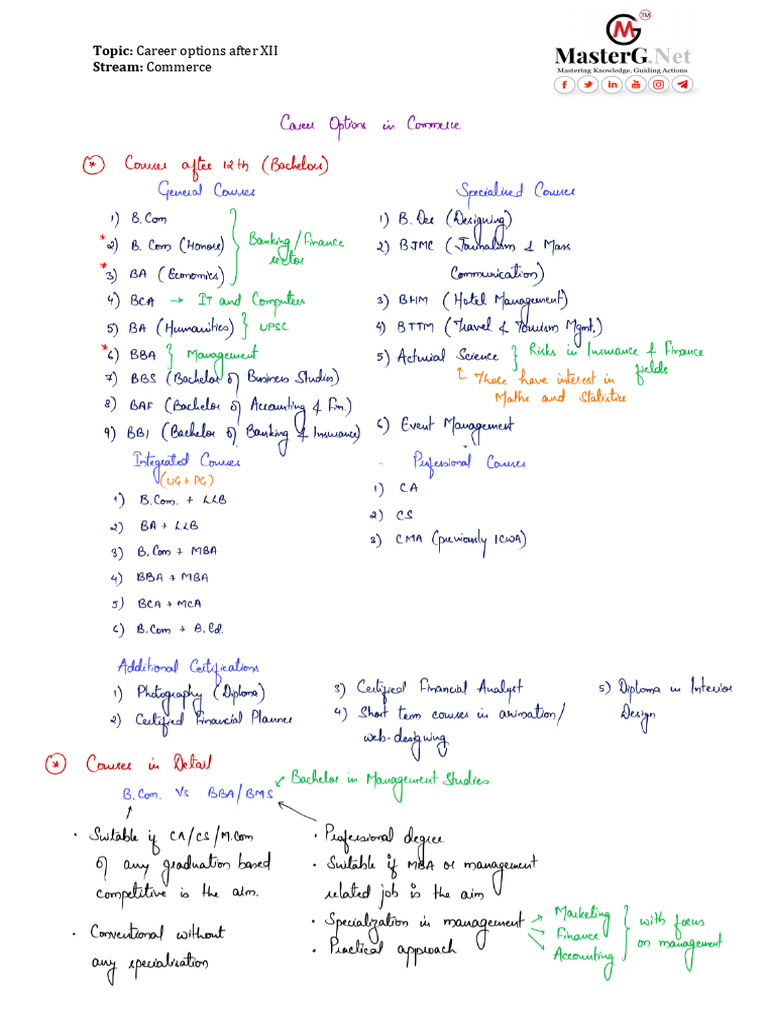 Topic: Career options after XII
Stream: Commerce
MasterG.Net
Mastering Knowledge, Guiding Actions
TM
Career Options in Commerce
* Courses after 12th (Bachelors)
General Courses
1) B.Com
* 2) B. Com (Honors)
* 3) BA (Economics)
Banking/Finance
sector
4) BCA → IT and Computers
5) BA (Humanities) } UPSC
* 6) BBA } Management
7) BBS (Bachelor of Business Studies)
8) BAF (Bachelor of Accounting & Fin.)
9) BBI (Bachelor of Banking & Insurance)
Specialised Courses
1) B.Des (Designing)
2) BJMC (Journalism & Mass
Communication)
3) BHM (Hotel Management)
4) BTTM (Travel & Tourism Mgmt.)
5) Actuarial Science } Risks in Insurance & Finance
fields
Those have interest in
Maths and Statistics
6) Event Management
Integrated Courses
(UG + PG)
1) B.Com. + LLB
2) BA + LLB
3) B.Com + MBA
4) BBA + MBA
5) BCA + MCA
6) B.Com + B.Ed.
Professional Courses
1) CA
2) CS
3) CMA (previously ICWA)
Additional Certifications
1) Photography (Diploma)
2) Certified Financial Planner
3) Certified Financial Analyst
4) Short term courses in animation/
web-designing
5) Diploma in Interior
Design
* Courses in Detail
B.Com. Vs BBA/BMS
Bachelor in Management Studies
• Suitable if CA/CS/M.Com
or any graduation based
competitive is the aim.
• Conventional without
any specialisation
• Professional degree
• Suitable if MBA or management
related job is the aim
• Specialization in management
Marketing
Finance
Accounting
with focus
on management
• Practical approach